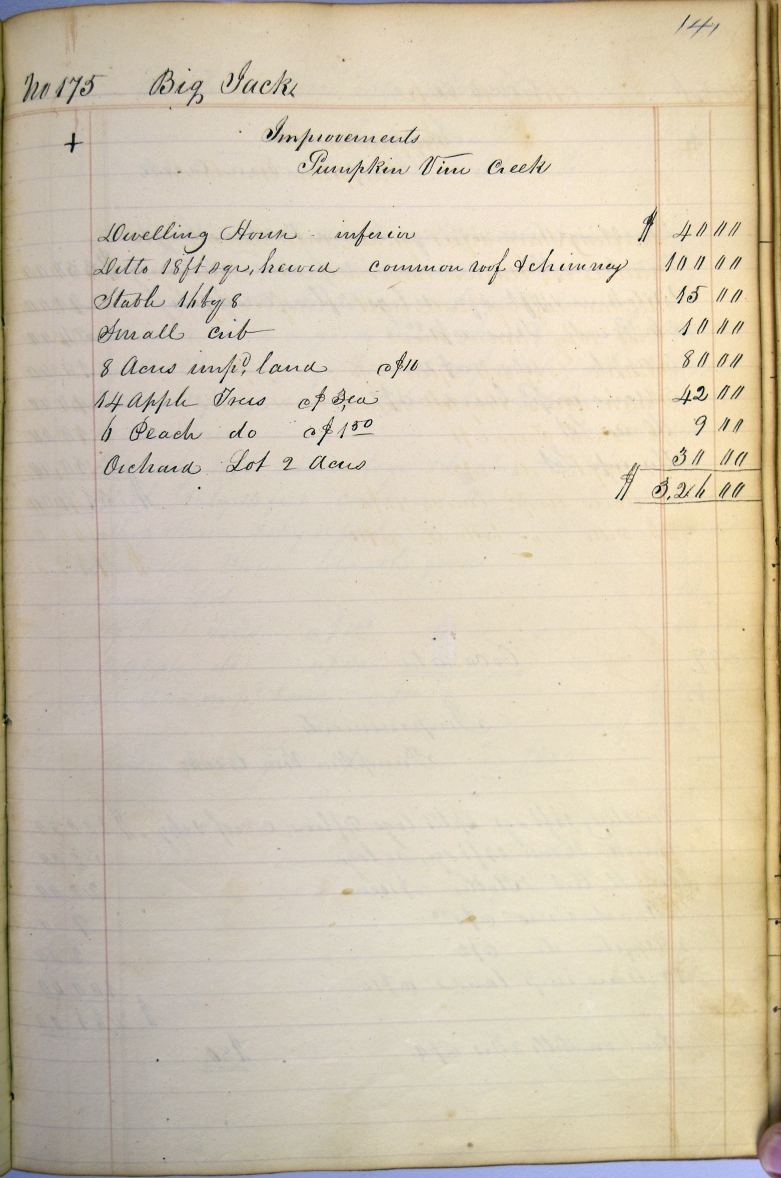 141
No 175 Big Jack
+ Improvements
Pumpkin Vine Creek
Dwelling House inferior $ 40 00
Ditto 18ft sqr, hewed common roof & chimney 100 00
Stable 16 by 8 15 00
Small crib 10 00
8 Acres impd, land @ $10 80 00
14 Apple Trees @ $3, ea 42 00
6 Peach do @ $1 50 9 00
Orchard Lot 2 Acres 30 00
$ 3,26 00